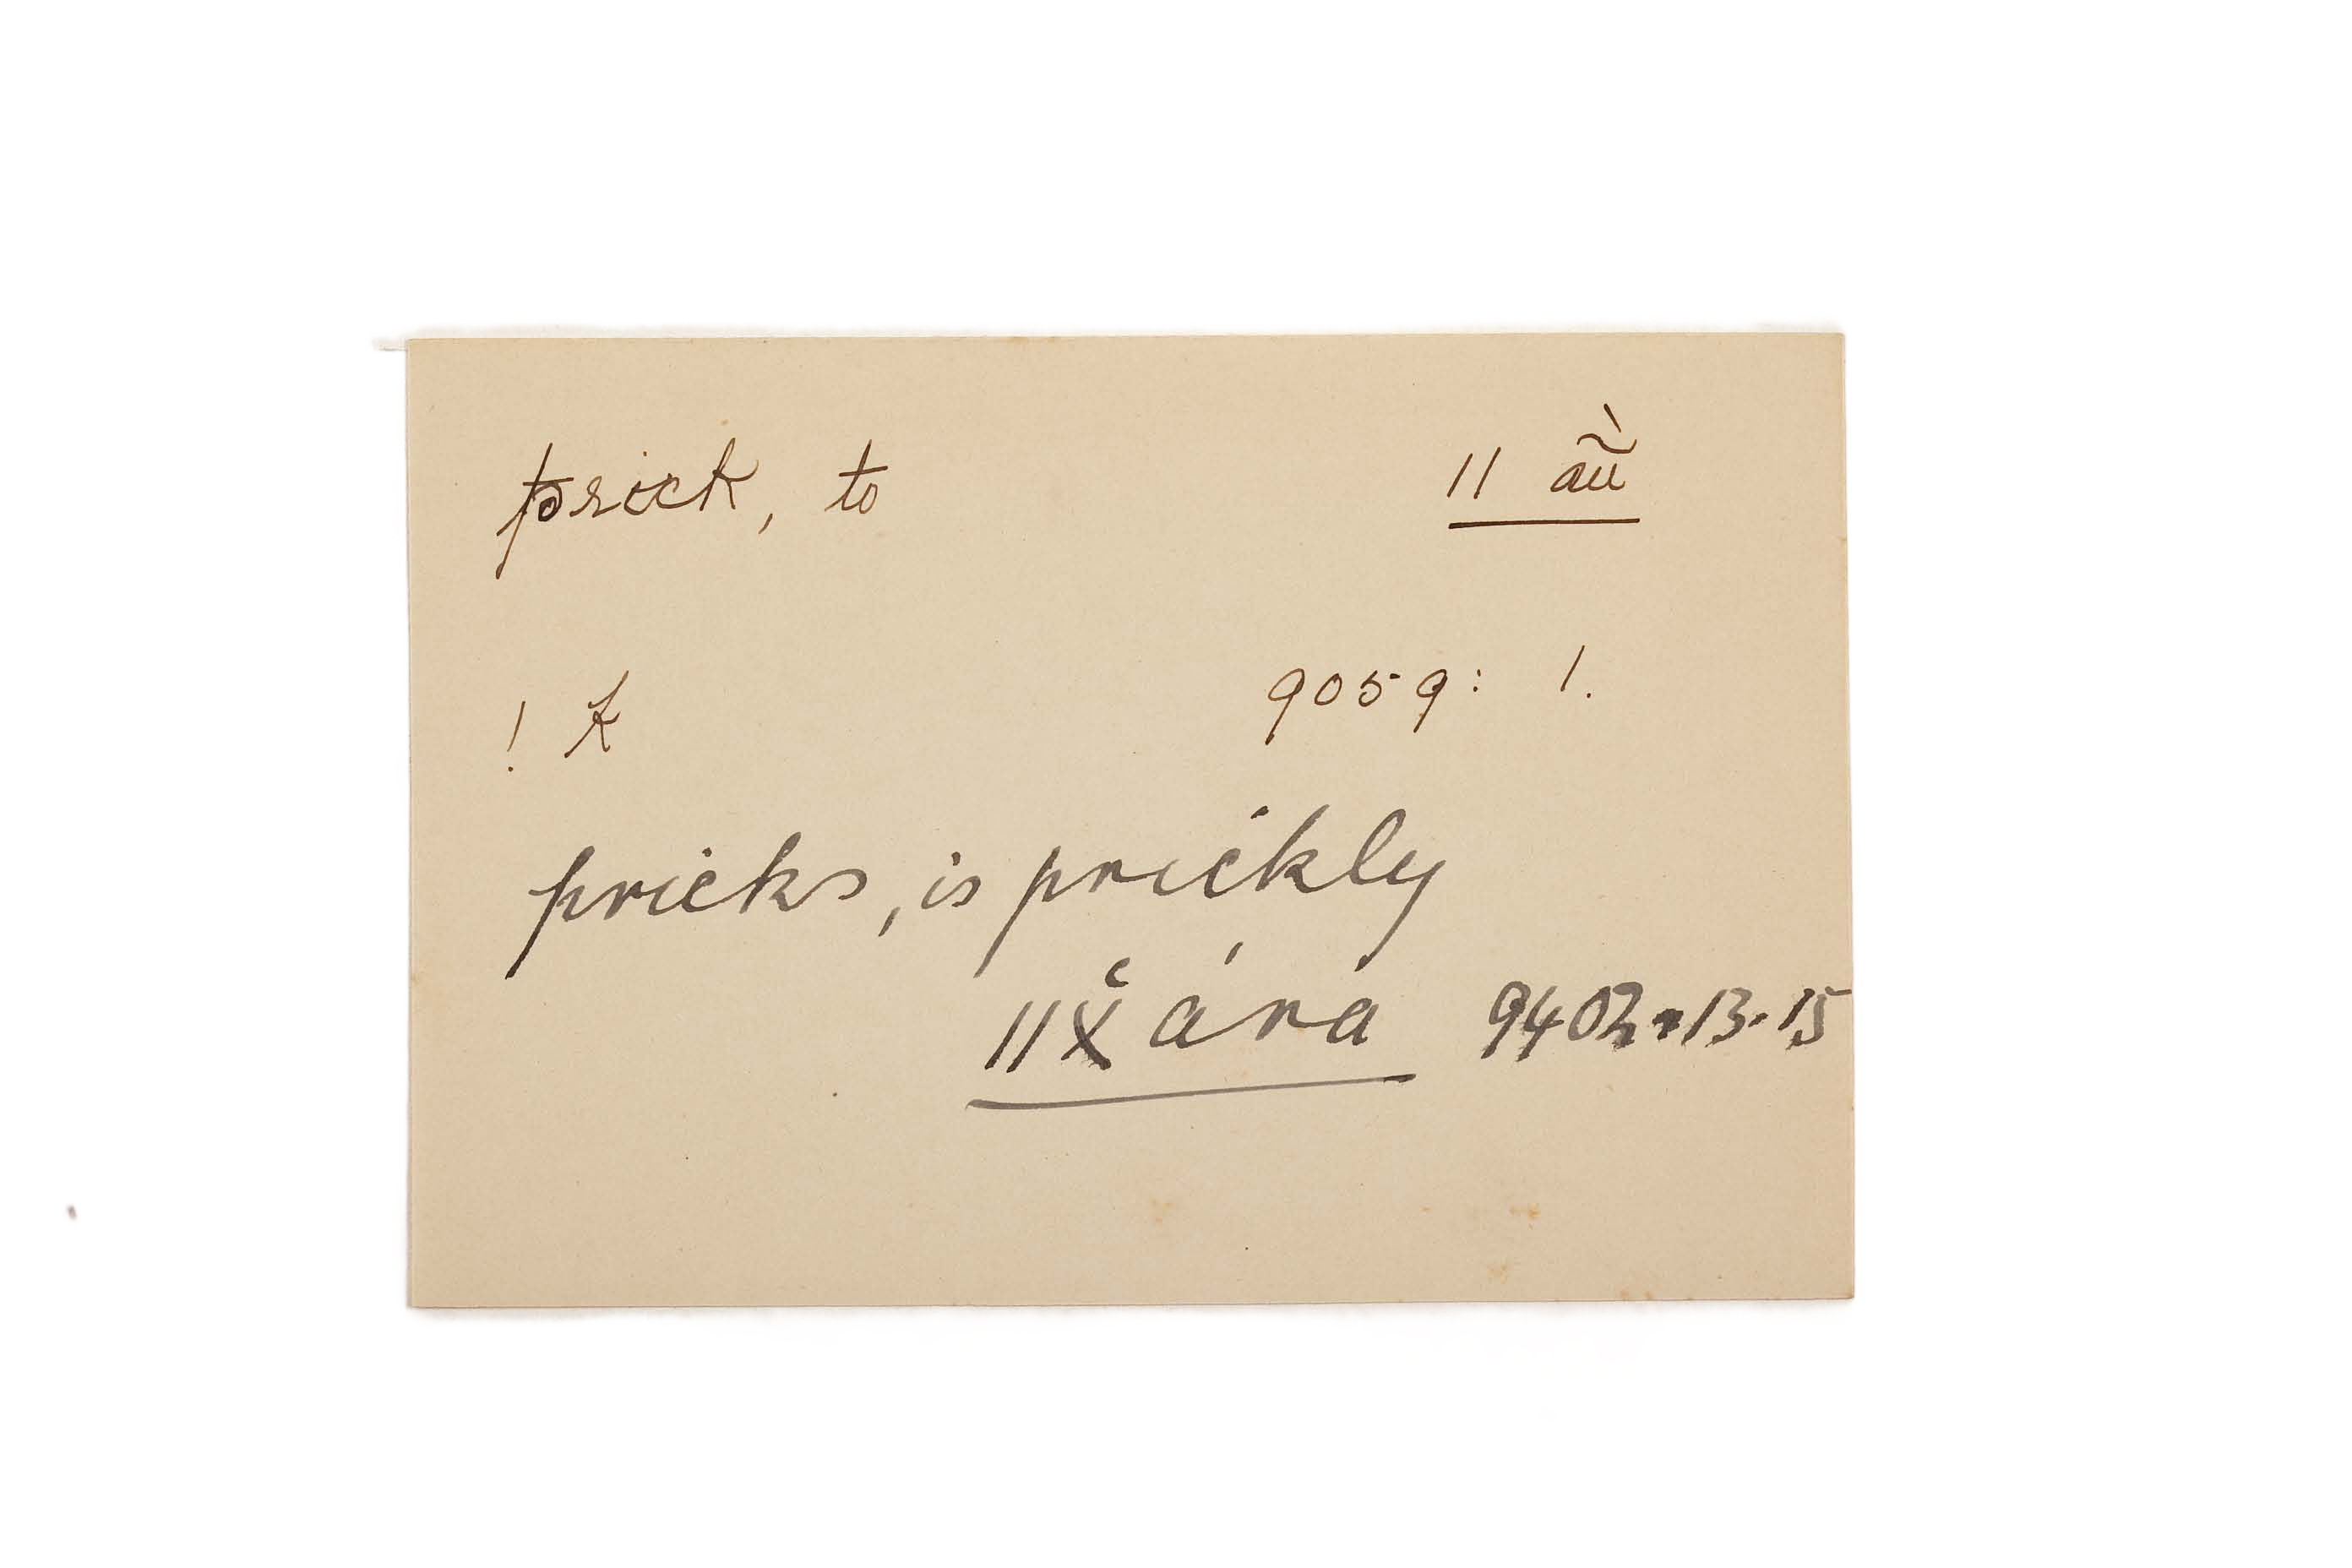 prick, to || aũ̀
! k 9059: 1.
pricks, is prickly
||X̆ ára 9402 • 13 • 15